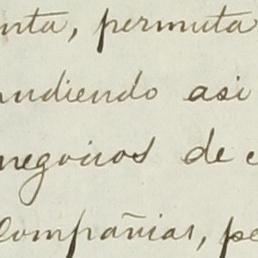 nta, permuta
udiendo asi
negocios de c
compañias, pe